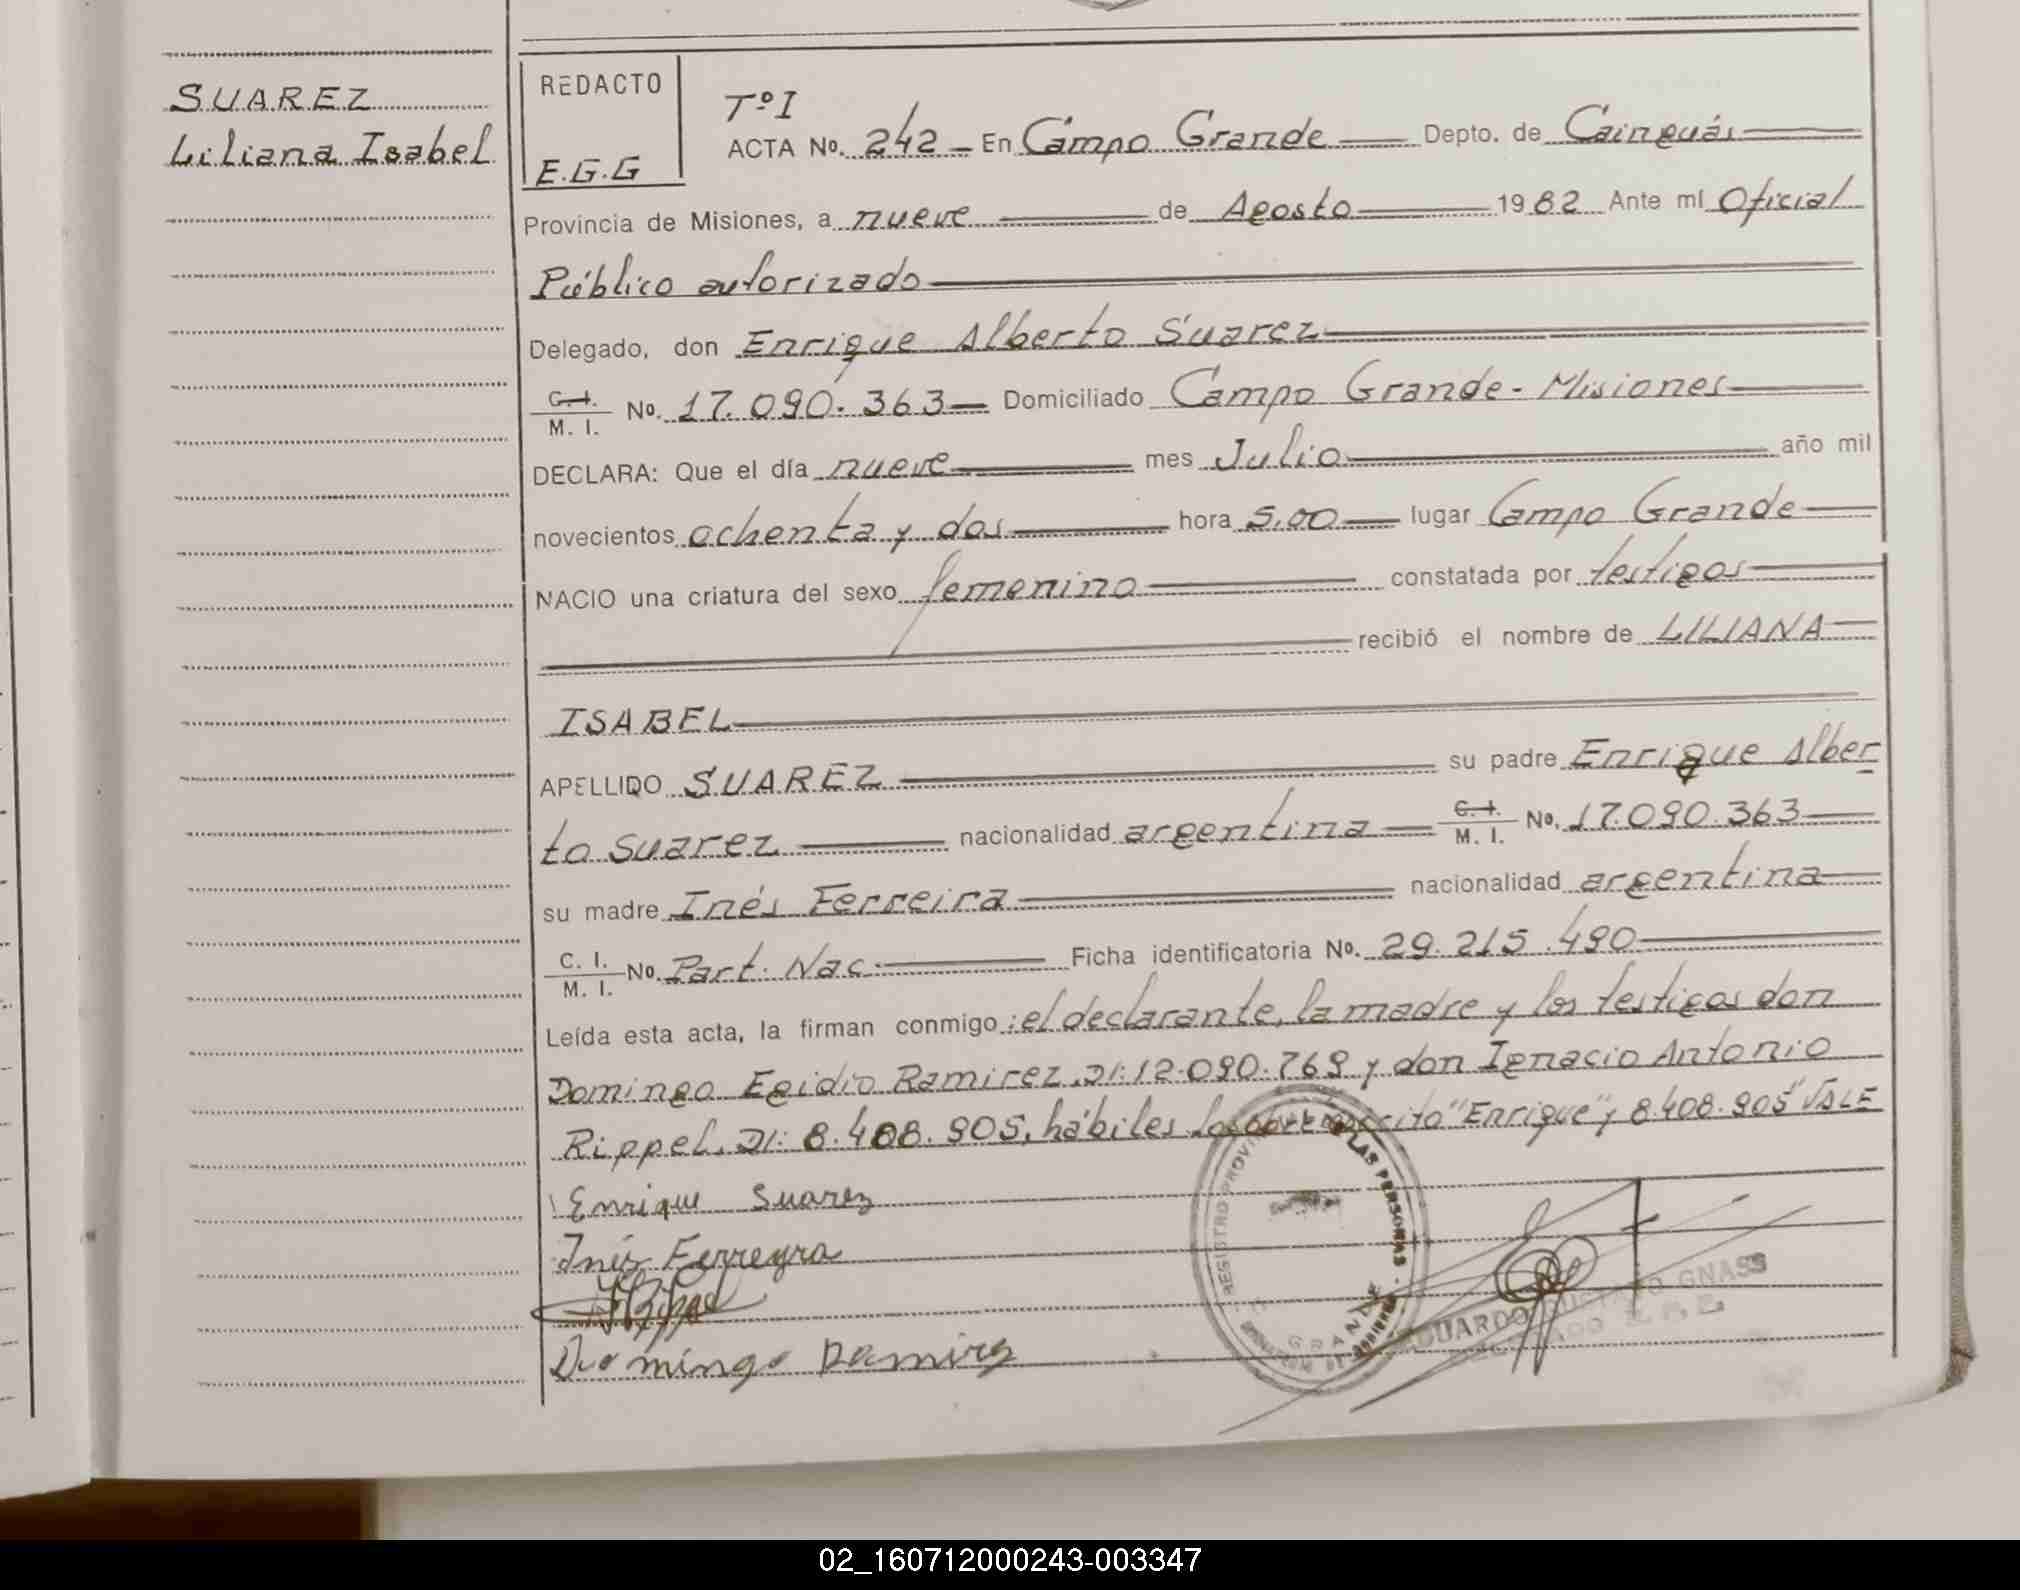 SUAREZ
Liliana Isabel
REDACTO
E.G.G
TºI
ACTA No. 242 - En Campo Grande Depto. de Cainguás
Provincia de Misiones, a nueve de Agosto 1982 Ante mí Oficial
Público autorizado
Delegado, don Enrique Alberto Suarez
C. I. / M. I. No. 17.090.363 Domiciliado Campo Grande - Misiones
DECLARA: Que el día nueve mes Julio año mil
novecientos ochenta y dos hora 5,00 lugar Campo Grande
NACIO una criatura del sexo femenino constatada por testigos
recibió el nombre de LILIANA
ISABEL
APELLIDO SUAREZ su padre Enrique Alber
to Suarez nacionalidad argentina C. I. / M. I. No. 17.090.363
su madre Inés Ferreira nacionalidad argentina
C. I. / M. I. No. Part. Nac. Ficha identificatoria No. 29.215.490
Leída esta acta, la firman conmigo: el declarante, la madre y los testigos don
Domingo Egidio Ramirez, DI: 12.090.769 y don Ignacio Antonio
Rippel, DI: 8.408.905, hábiles Lo sobreescrito "Enrique" y 8.408.905" VALE
Enrique Suarez
Inés Ferreyra
Domingo Ramirez
REGISTRO PROVINCIAL DE LAS PERSONAS
GRANDE
EDUARDO GUSTAVO GNASS
DELEGADO R. P. P.
02_160712000243-003347